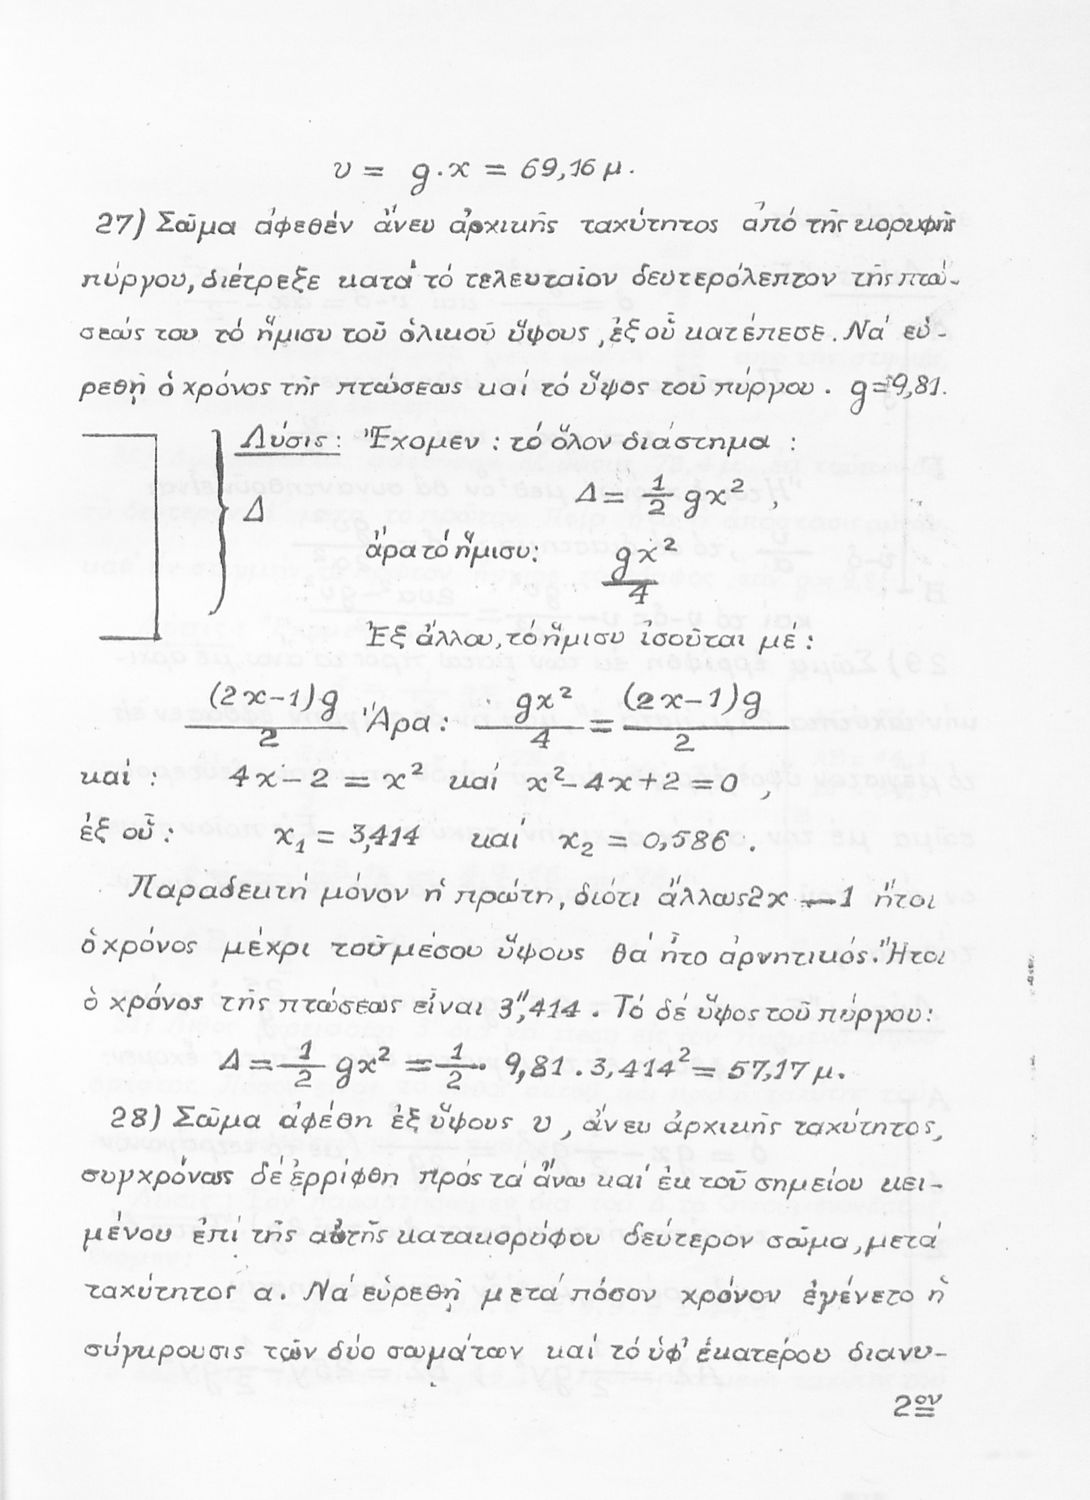 υ = g·x = 69,16 μ.
27) Σῶμα ἀφεθέν ἄνευ ἀρχικῆς ταχύτητος ἀπό τῆς κορυφῆς
πύργου, διέτρεξε κατά τό τελευταῖον δευτερόλεπτον τῆς πτώ-
σεώς του τό ἥμισυ τοῦ ὁλικοῦ ὕψους, ἐξ οὗ κατέπεσε. Νά εὑ-
ρεθῇ ὁ χρόνος τῆς πτώσεως καί τό ὕψος τοῦ πύργου. g=9,81.
Λύσις: Ἔχομεν: τό ὅλον διάστημα :
Δ = 1/2 gx² ,
Δ
ἄρα τό ἥμισυ: gx²/4
Ἐξ ἄλλου, τό ἥμισυ ἰσοῦται μέ:
(2x-1)g/2 Ἄρα: gx²/4 = (2x-1)g/2
καί: 4x-2 = x² καί x²-4x+2=0 ,
ἐξ οὗ: x₁ = 3,414 καί x₂ = 0,586 .
Παραδεκτή μόνον ἡ πρώτη, διότι ἄλλως 2x - 1 ἤτοι
ὁ χρόνος μέχρι τοῦ μέσου ὕψους θά ἦτο ἀρνητικός. Ἤτοι
ὁ χρόνος τῆς πτώσεως εἶναι 3",414 . Τό δέ ὕψος τοῦ πύργου:
Δ = 1/2 gx² = 1/2 · 9,81 . 3,414² = 57,17 μ.
28) Σῶμα ἀφέθη ἐξ ὕψους υ, ἄνευ ἀρχικῆς ταχύτητος,
συγχρόνως δέ ἐρρίφθη πρός τά ἄνω καί ἐκ τοῦ σημείου κει-
μένου ἐπί τῆς αὐτῆς κατακορύφου δεύτερον σῶμα, μετά
ταχύτητος α. Νά εὑρεθῇ μετά πόσον χρόνον ἐγένετο ἡ
σύγκρουσις τῶν δύο σωμάτων καί τό ὑφ' ἑκατέρου διανυ-
2ον